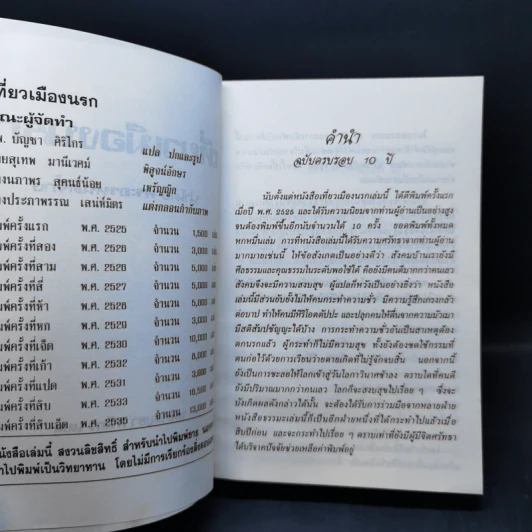 ที่ยวเมืองนรก
ณะผู้จัดทำ
พ. บัญชา ศิริไกร
ยสุเทพ มานีเวศม์
งนภาพร สุคนธ์น้อย
งประภาพรรณ เสน่ห์มิตร
แปล ปกและรูป
พิสูจน์อักษร
เหรัญญิก
แต่งกลอนกำกับภาพ
พ์ครั้งแรก พ.ศ. 2525 จำนวน 1,500
พ์ครั้งที่สอง พ.ศ. 2526 จำนวน 3,000
พ์ครั้งที่สาม พ.ศ. 2526 จำนวน 5,000
พ์ครั้งที่สี่ พ.ศ. 2527 จำนวน 5,000
พ์ครั้งที่ห้า พ.ศ. 2526 จำนวน
พ์ครั้งที่หก พ.ศ. 2529 จำนวน
พ์ครั้งที่เจ็ด พ.ศ. 2530 จำนวน 10,000
พ์ครั้งที่เก้า พ.ศ. 2532 จำนวน
พ์ครั้งที่แปด พ.ศ. 2531 จำนวน 3,000
พ์ครั้งที่สิบ พ.ศ. 2533 จำนวน
พ์ครั้งที่สิบเอ็ด พ.ศ. 2535 จำนวน 13,000
นังสือเล่มนี้ สงวนลิขสิทธิ์ สำหรับนำไปพิมพ์ขาย
ำไปพิมพ์เป็นวิทยาทาน โดยไม่มีการเรียกร้อง
คำนำ
ฉบับครบรอบ 10 ปี
นับตั้งแต่หนังสือเที่ยวเมืองนรกเล่มนี้ ได้ตีพิมพ์ครั้งแรก
เมื่อปี พ.ศ. 2525 และได้รับความนิยมจากท่านผู้อ่านเป็นอย่างสูง
จนต้องพิมพ์ขึ้นอีกนับจำนวนได้ 10 ครั้ง ยอดพิมพ์ทั้งหมด
หกหมื่นเล่ม การที่หนังสือเล่มนี้ได้รับความศรัทธาจากท่านผู้อ่าน
มากมายเช่นนี้ ให้ข้อสังเกตเป็นอย่างดีว่า สังคมบ้านเรายังมี
ศีลธรรมและคุณธรรมในระดับพอใช้ได้ คือยังมีคนดีมากกว่าคนเลว
สังคมจึงจะมีความสงบสุข ผู้แปลก็หวังเป็นอย่างยิ่งว่า หนังสือ
เล่มนี้มีส่วนยับยั้งไม่ให้คนกระทำความชั่ว มีความรู้สึกเกรงกลัว
ต่อบาป ทำให้คนมีหิริโอตตัปปะ และปลุกคนให้ตื่นจากความมัวเมา
มีสติสัมปชัญญะได้บ้าง การกระทำความชั่วอันเป็นสาเหตุต้อง
ตกนรกแล้ว ผู้กระทำก็ไม่มีความสุข ทั้งยังต้องชดใช้กรรมที่
ตนก่อไว้ด้วยการเวียนว่ายตายเกิดที่ไม่รู้จักจบสิ้น นอกจากนี้
ยังเป็นการชะลอให้โลกเข้าสู่วันโลกาวินาศช้าลง ตราบใดที่คนดี
ยังมีปริมาณมากกว่าคนเลว โลกก็จะสงบสุขไปเรื่อย ๆ ซึ่งจะ
บังเกิดผลดังกล่าวได้นั้น จะต้องได้รับการร่วมมือจากหลายฝ่าย
หนังสือธรรมะเล่มนี้ก็เป็นอีกฝ่ายหนึ่งที่ได้กระทำไปแล้วเมื่อ
สิบปีก่อน และจะกระทำไปเรื่อย ๆ ตราบเท่าที่ยังมีผู้มีจิตศรัทธา
ได้บริจาคปัจจัยช่วยเหลือค่าพิมพ์อยู่